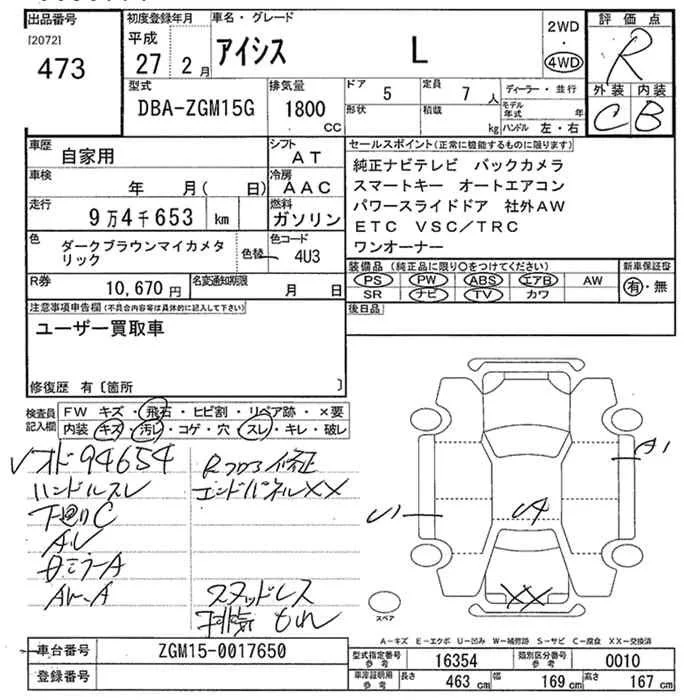 出品番号
[2072]
473
初度登録年月
平成
27 2月
車名・グレード
アイシス L
2WD
・
4WD
評価点
R
外装 内装
C B
型式
DBA-ZGM15G
排気量
1800
CC
ドア 5
定員 7 人
形状
積載 kg
ディーラー・並行
モデル年式 年
ハンドル 左・右
車歴 自家用
シフト AT
車検 年 月( 日)
冷房 AAC
走行 9万4千653 km
燃料 ガソリン
色 ダークブラウンマイカメタリック
色替
色コード 4U3
R券 10,670円
名変通知期限 月 日
セールスポイント(正常に機能するものに限ります)
純正ナビテレビ バックカメラ
スマートキー オートエアコン
パワースライドドア 社外AW
ETC VSC/TRC
ワンオーナー
装備品(純正品に限り○をつけてください)
PS PW ABS エアB AW
SR ナビ TV カワ
新車保証書
有・無
後日品
注意事項申告欄(不具合内容等は具体的に記入して下さい)
ユーザー買取車
修復歴 有〔箇所 〕
検査員記入欄
FW キズ・飛石・ヒビ割・リペア跡・×要
内装 キズ・汚レ・コゲ・穴・スレ・キレ・破レ
オド94654
ハンドルスレ
下廻りC
AU
ミラーA
Rフロア修正
エンドパネルXX
スタッドレス
排気もれ
A1
U1
UA
XX
スペア
A-キズ E-エクボ U-凹み W-補修跡 S-サビ C-腐食 XX-交換済
車台番号 ZGM15-0017650
登録番号
型式指定番号 参考 16354
類別区分番号 参考 0010
車庫証明用 参考 長さ 463 cm 幅 169 cm 高さ 167 cm